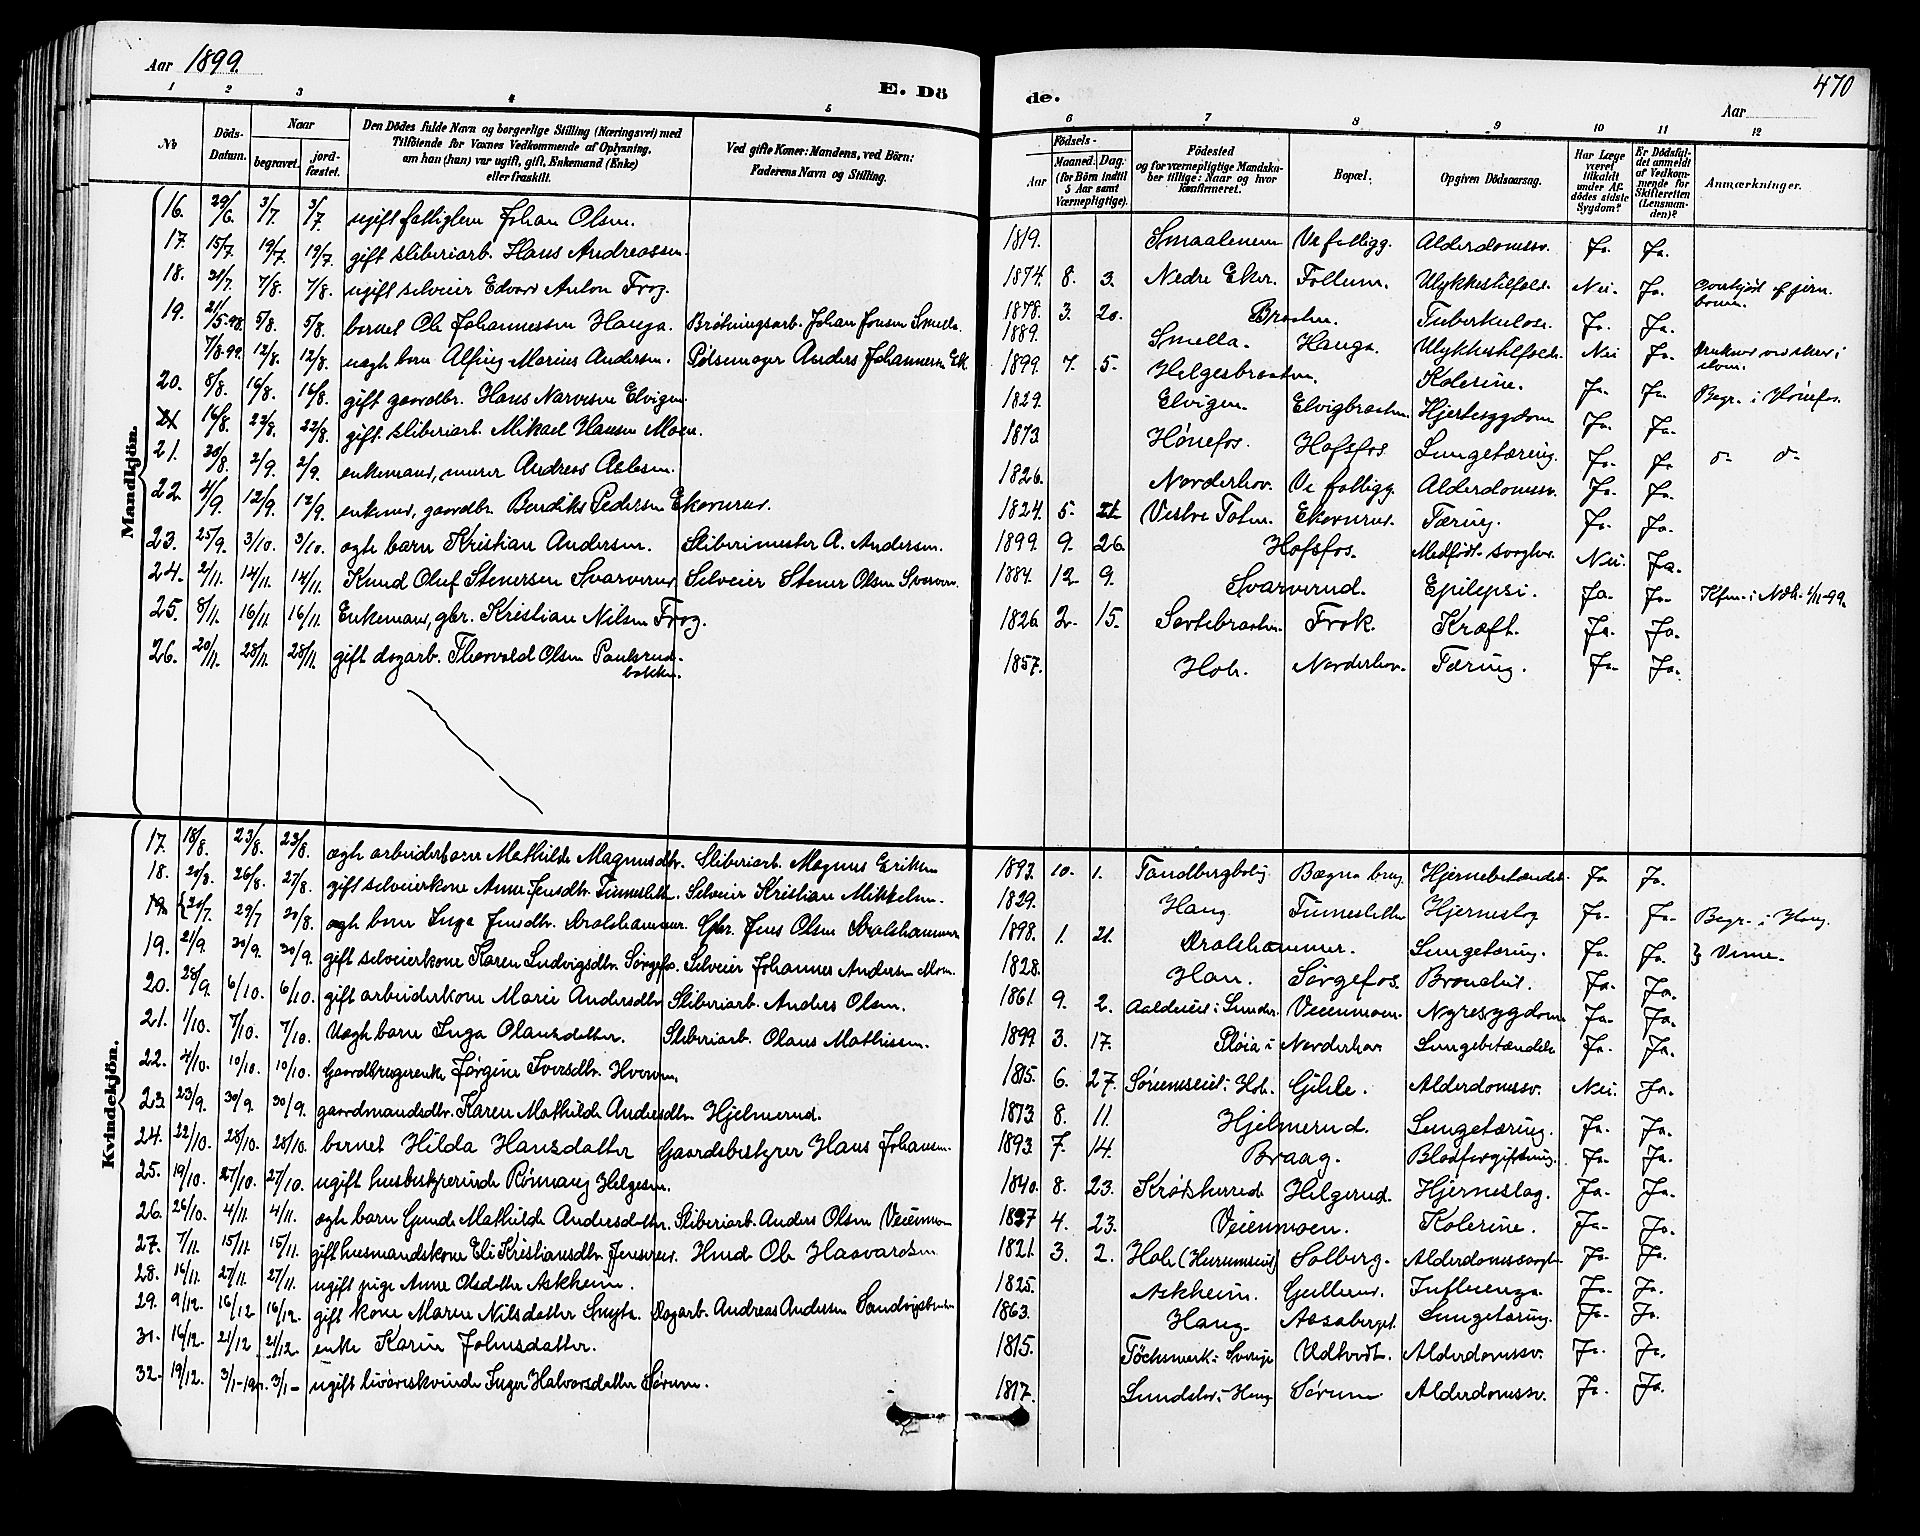 Aar 1899.
E. Dö
de.
470
Aar
1 2 3 4 5
6 7 8 9 10 11 12
No
Döds-Datum.
Naar
begravet.
jordfæstet.
Den Dödes fulde Navn og borgerlige Stilling (Næringsvei) med
Tilföiende for Voxnes Vedkommende af Oplysning,
om han (hun) var ugift, gift, Enkemand (Enke)
eller fraskilt.
Ved gifte Koner: Mandens, ved Börn:
Faderens Navn og Stilling.
Födsels-
Aar
Maaned. Dag.
(for Börn indtil
5 Aar samt
Værnepligtige).
Födested
og for værnepligtige Mandskaber tillige: Naar og hvor
konfirmeret.
Bopæl.
Opgiven Dödsaarsag.
Har Læge været tilkaldt under Afdödes sidste Sygdom?
Er Dödsfaldet anmeldt af Vedkommende for Skifteretten (Lensmanden)?
Anmærkninger.
Mandkjön.
16. 29/6 3/7 3/7 ugift fattiglem Johan Olsen. 1819. Smaalenene Ve fattigg. Alderdomssv. Ja. Ja.
17. 15/7. 19/7. 19/7. gift sliberiarb. Hans Andreassen. 1874. 8. 3. Nedre Eker. Follum. Ulykkestilfæld. Nei. Ja.
18. 31/7. 7/8. 7/8. ugift selveier Edvard Anton Frog. 1878. 3. 20. Braaten. Tuberkulose. Ja. Ja.
19. 21/5-98. 5/8. 5/8. barnet Ole Johannessen Hauga. Brøtningsarb. Johan Jonsen Smella. 1889. Smella. Hauga. Ulykkestilfælde Nei Ja.
7/8.99. 12/8. 12/8. uægte barn Alfing Marius Andersen. Pølsemager Anders Johannesen Eek 1899 7. 5. Helgesbraaten. Kolerine. Ja. Ja. Begr. i Hønefos.
20. 8/8. 16/8. 16/8. gift gaardbr. Hans Narvesen Elvigen. 1829. Elvigen. Elvigbraaten Hjertesygdom Ja. Ja.
21 16/8. 22/8. 22/8. gift. sliberiarb. Mikael Hansen Moen. 1873 Hønefos. Hofsfos. Lungetæring. Ja. Ja. d- d-
21. 30/8. 2/9. 2/9. enkemand, murer Andreas 1826. Norderhov. Ve fattigg. Alderdomssv. Ja. Ja.
22. 4/9. 12/9. 12/9. enkemd, gaardbr. Bendiks Pedersen Ekornrud. 1824. 5. 21. Vestre Toten. Ekornrud. Tæring. Ja. Ja.
23. 25/9. 3/10. 3/10. ægte barn Kristian Andersen. Sliberimester A. Andersen. 1899. 9. 26. Hofsfos. Medfødt svaghed. Nei. Ja.
24. 2/11. 14/11. 14/11. Knud Oluf Stenersen Svarverud Selveier Stener Olsen Svarverud 1884. 12. 9. Svarverud. Epilepsi. Ja. Ja.
25. 8/11. 16/11. 16/11. Enkemand, gbr. Kristian Nilsen Frog. 1826. 2. 15. Sortebraaten. Frok. Kræft. Ja. Ja.
26. 20/11. 28/11. 28/11. gift dagarb. Thorvald Olsen Paulsrud- 1857. Hole. Norderhov. Tæring. Ja. Ja.
bakken.
Kvindekjön.
17. 18/8. 23/8. 23/8. ægte arbeiderbarn Mathilde Magnusdtr. Sliberiarb. Magnus Eriksen 1893. 10. 1. Tandbergbolig. Bægna brug. Hjernebetændelse. Ja. Ja.
18. 20/8. 26/8. 27/8. gift selveierkone Anne Jensdtr. Finnesletten. Selveier Kristian Mikkelsen. 1829. Haug. Finnesletten Hjerneslag Ja. Ja. Begr. i Haug.
19. 20/7. 29/7 20/8. ægte barn Inga Jensdtr. Gbr. Jens Olsen 1898. 1. 21. Lungetæring. Ja. Ja. Vime.
19. 21/9. 30/9. 30/9. gift selveierkone Karen Ludvigsdtr. Sørgefos. Selveier Johannes Andersen Moen. 1828. Sørgefos. Bronchit. Ja. Ja.
20. 28/9. 6/10. 6/10. gift arbeiderkone Marie Andersdtr. Sliberiarb. Anders Olsen. 1861. 9. 2. Veienmoen. Nyresygdom Ja. Ja.
21. 1/10. 7/10. 7/10. Uægte barn Inga Olausdatter. Sliberiarb. Olaus Mathissen. 1899. 3. 17. Pløia i Norderhov Lungebetændelse Ja. Ja.
22. 4/10. 10/10. 10/10. Gaardbrugerenke Jørgine Iversdtr. Hverven. 1815. 6. 27. Sørumseiet i Hole. Gihle. Alderdomssv. Nei. Ja.
23. 23/9. 30/9. 30/9. gaardmandsdtr. Karen Mathilde Andersdtr. Hjelmerud. 1873. 8. 11. Hjelmerud. Lungetæring. Ja. Ja.
24. 22/10. 28/10. 28/10. barnet Hilda Hansdatter Gaardsbestyrer Hans Johansen. 1893. 7. 14. Braag. Blodforgiftning. Ja. Ja.
25. 19/10. 27/10. 27/10. ugift husbestyrerinde Rønnaug Helgesen. 1840. 8. 23. Krødsherred. Helgerud. Hjerneslag. Ja. Ja.
26. 26/10. 4/11. 4/11. ægte barn Gunda Mathilde Andersdatter. Sliberiarb. Anders Olsen Veienmoen 1897 4. 23. Veienmoen. Kolerine. Ja. Ja.
27. 7/11. 15/11. 15/11. gift husmandskone Eli Kristiansdtr. Jensrud. Husmd Ole Haavardsen 1821. 3. 2. Hole Solberg. Alderdomssvaghed Ja. Ja.
28. 16/11. 27/11. 27/11. ugift pige Anne Olsdatter Askheim. 1825. Askheim. Gullerud. Influenza. Ja. Ja.
29. 9/12. 16/12 16/12. gift kone Maren Nilsdatter Snyta. Dagarb. Andreas Andersen Sandvigbraaten 1863. Haug. Aasaberget. Lungetæring. Ja. Ja.
31. 16/12. 21/12. 21/12. enke Karin Johnsdatter. 1815. Töcksmark i Sverige Udtvedt. Alderdomssv. Ja. Ja.
32. 19/12. 3/1-190. 3/1- ugift livørekvinde Inger Halvorsdatter Sørum. 1817. Haug Sørum Alderdomssv. Ja. Ja.